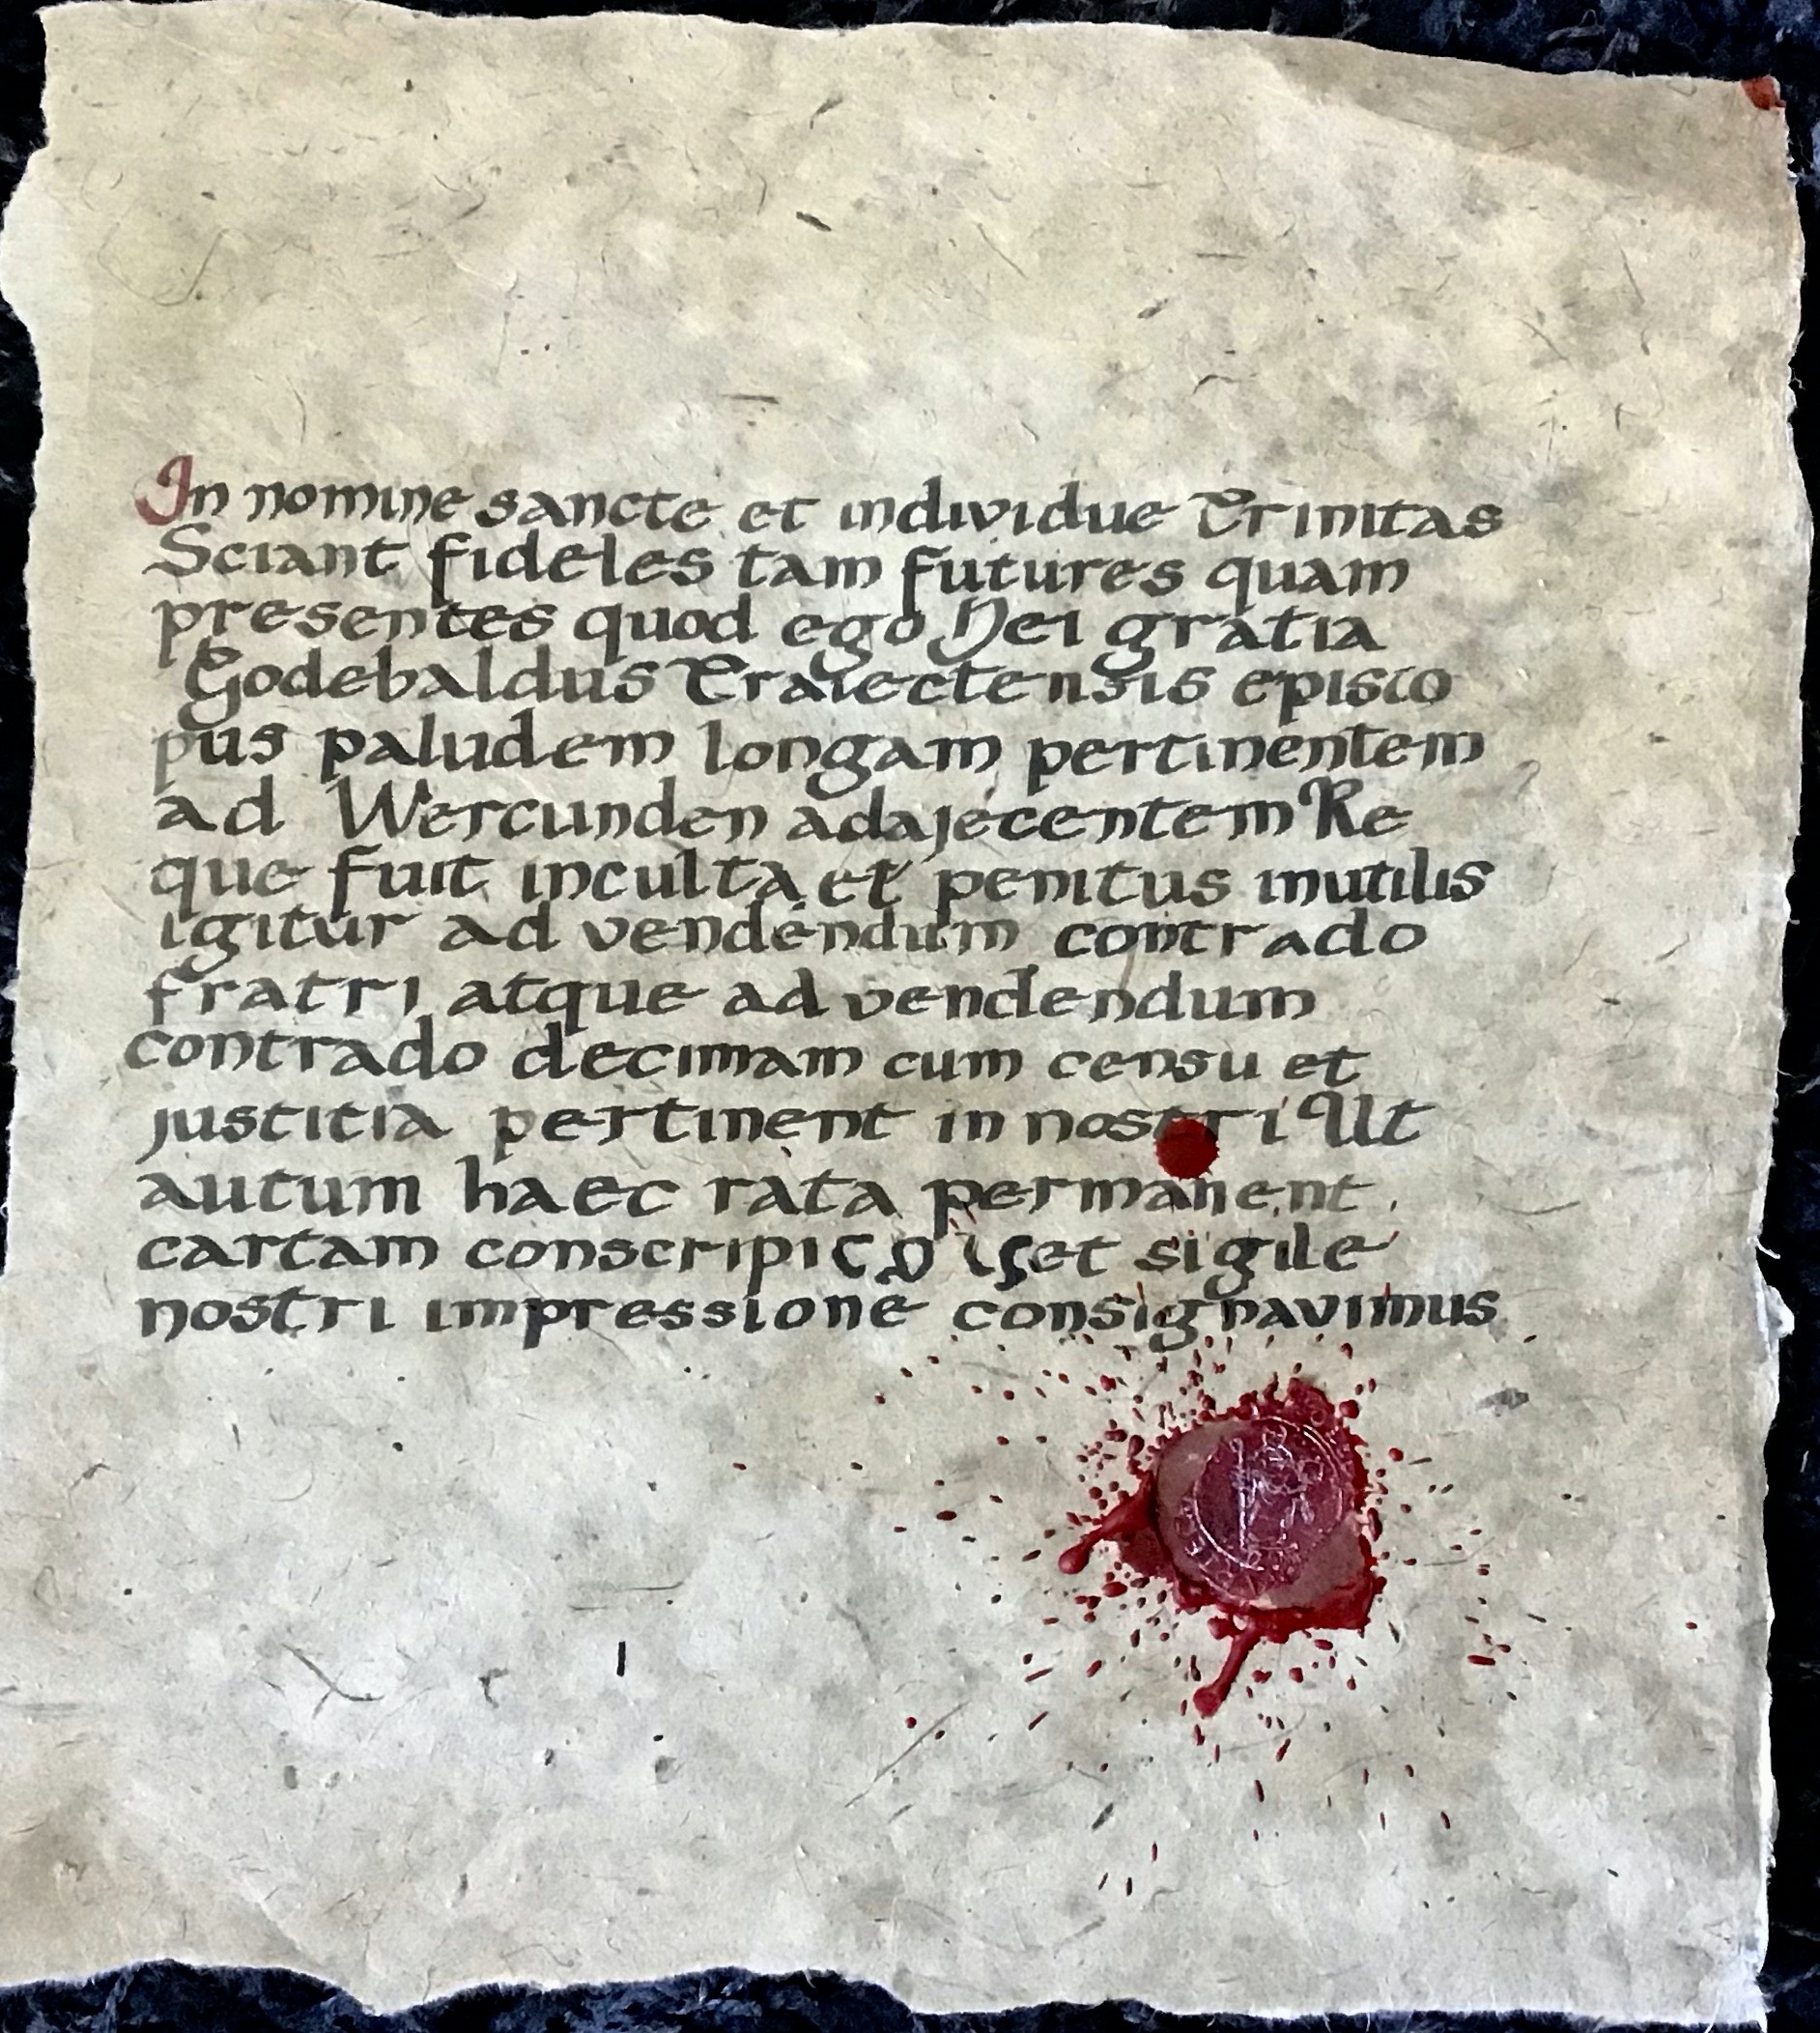 In nomine sancte et individue Trinitas
Sciant fideles tam futures quam
presentes quod ego Dei gratia
Godebaldus Traiectensis episco
pus paludem longam pertinentem
ad Wercunden adajecentem Re
que fuit inculta et penitus inutilis
igitur ad vendendum contrado
fratri atque ad vendendum
contrado decimam cum censu et
justitia pertinent in nostri Ut
autum haec rata permanent
cartam et sigile
nostri impressione consignavimus